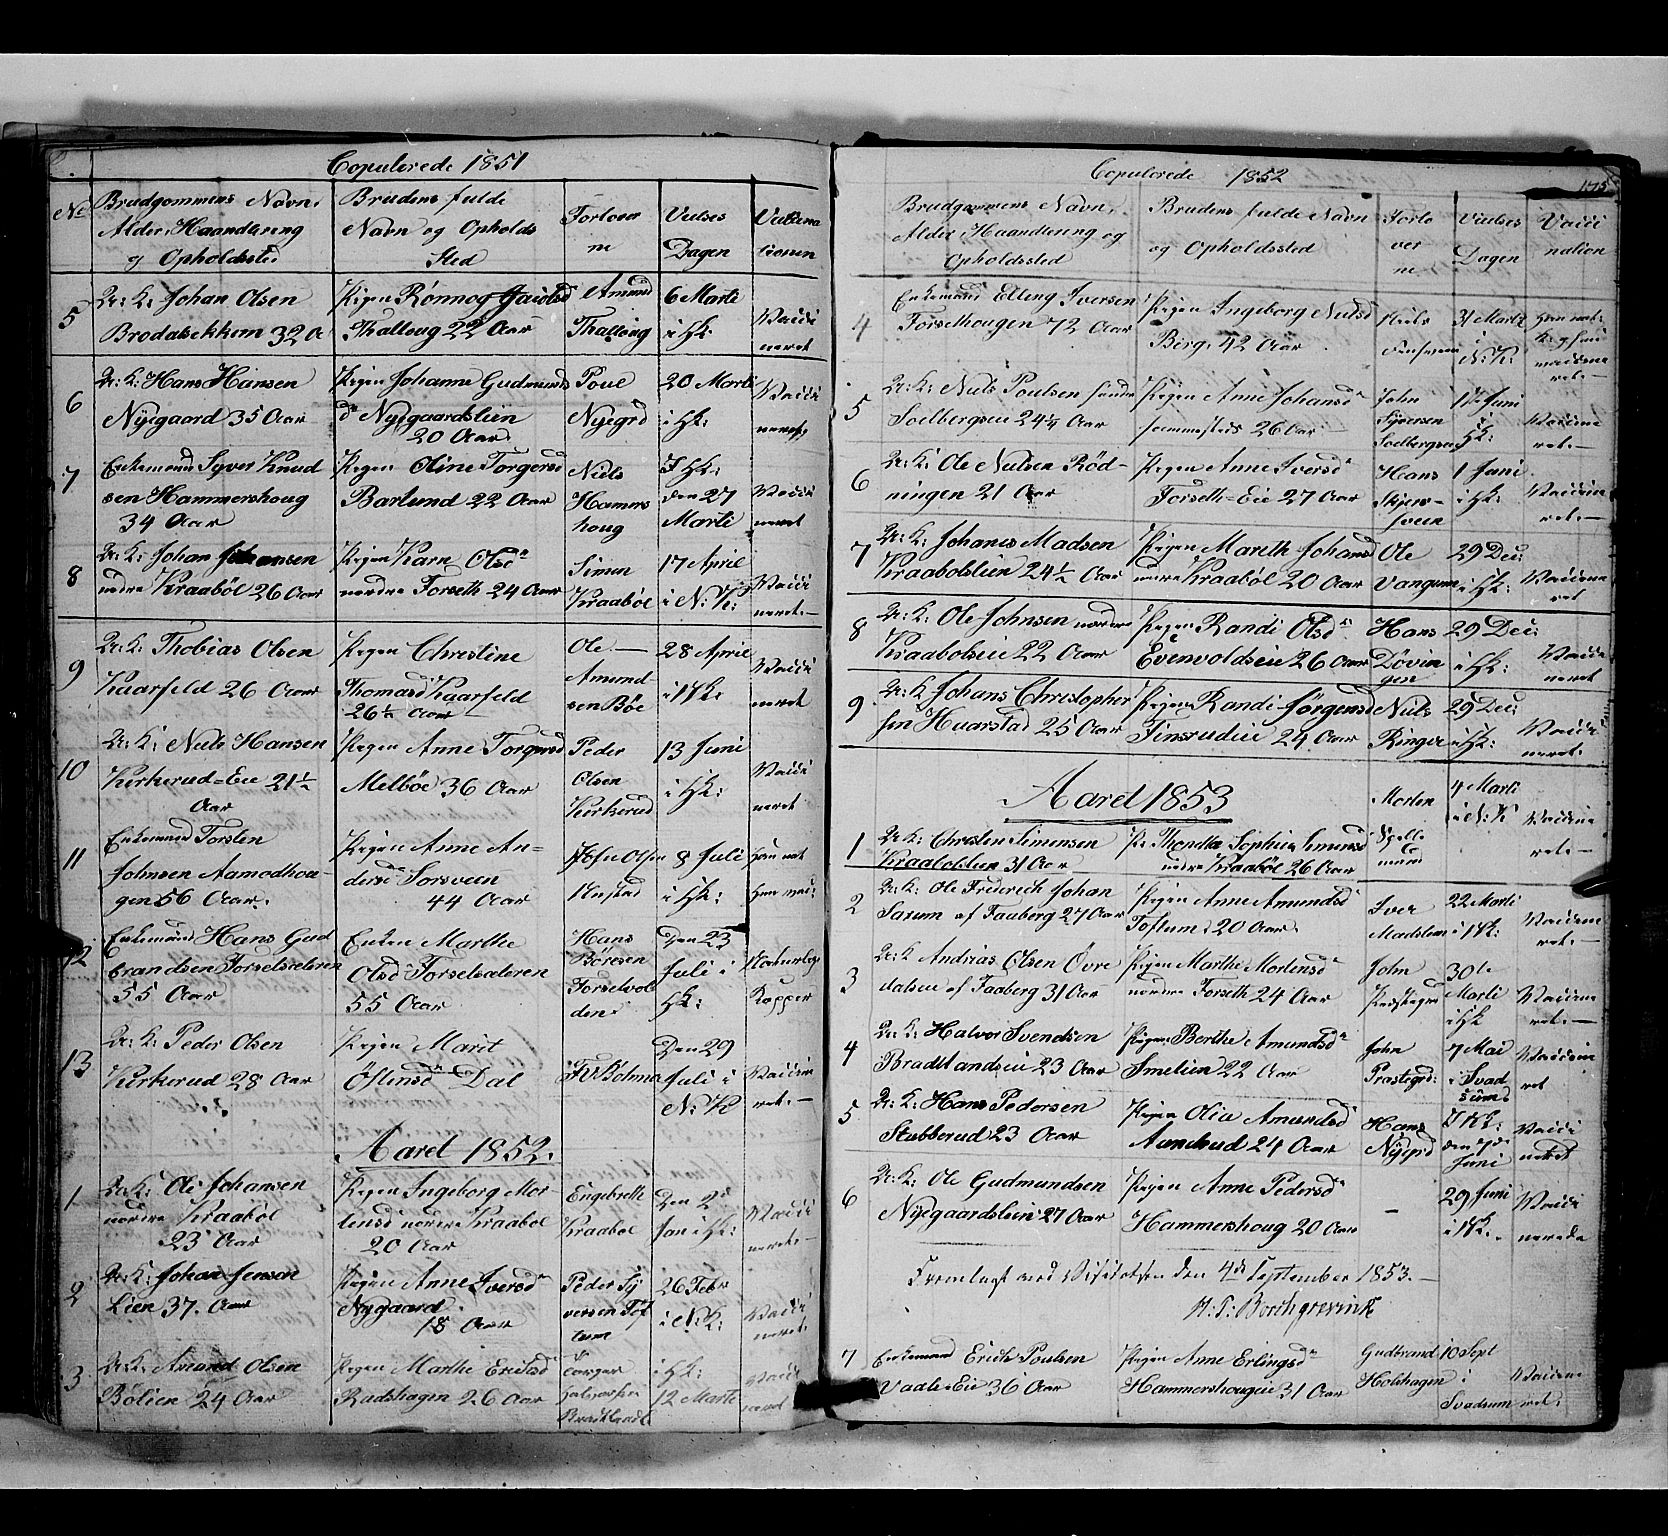 Copulerede 1851
No
Brudgommens Navn,
Alder, Haandtering
og Opholdssted
Brudens fulde
Navn og Opholds
Sted
Forlover
ne
Vielses
Dagen
Vaccina
tionen
5
U: K: Johan Olsen
Brodalsekkern 32 A
Pigen Rønnog
Thalloug 22 Aar
Amund
Thalloug
6 Marti
i Hk:
Vacci
neret
6
U: K: Hans Hansen
Nygaard 35 Aar
Pigen Johanne Gudmunds
d Nygaardslien
20 Aar
Poul
Nyegrd
20 Marti
i Hk:
Vacci
neret
7
Enkemand Syver Knud
sen Hammershoug
34 Aar
Pigen Oline Torgersd
Barlund 22 Aar
Niels
Hamers
houg
I Hk:
den 27
Marti
Vacci
neret
8
U: K: Johan Johansen
nedre Kraabøl 26 Aar
Pigen Karn Olsd
nordre Forseth 24 Aar
Simen
Kraabøl
17 April
i N: K:
Vacci
neret.—
9
U: K: Thobias Olsen
Kaarfeld 26 Aar
Pigen Christine
Thomasd Kaarfeld
26 ½ Aar
Ole —
Amund
sen Bøe
28 April
i Hk:
Vacci
neret
10
U: K: Nils Hansen
Kirkerud=Eie 21 ½
Aar
Pigen Anne Torgersd
Melbøe 36 Aar
Peder
Olsen
Kirkerud
13 Juni
i Hk:
Vacci
neret
11
Enkemand Torsten
Johnsen Aamodhou-
gen 56 Aar.
Pigen Anne An-
dersd Sorsveen
44 Aar
Olsen
8 Juli
i Hk:
12
Enkemand Hans Gud
brandsen Forsetsæteren
55 Aar
Enken Marthe
Olsd Forsetsæteren
55 Aar
Hans
Børesen
Forsetvol
den
Den 23
Juli i
Hk:
Naturlige
Kopper
13
U: K: Peder Olsen
Kirkerud 28 Aar
Pigen Marit
Østensd Dal
Den 29
Juli i
N: K
Vaccine
ret.—
Aaret 1852.
1
U: K: Ole Johansen
nordre Kraabøl
23 Aar
Pigen Ingeborg Mor-
tensd nordre Kraabøl
20 Aar
Engebreth
Kraabøl
Den 2d
Jan i Hk:
Vacci
neret.—
2
U: K: Johan Jensen
Lien 37. Aar
Pigen Anne Iversd
Nygaard.
18 Aar
Peder Sy
versen Tof
tum
26 Febr
i N: K:
Vacci
neret.
3
U: K: Amund Olsen
Bølien 24 Aar
Pigen Marthe Erichsd
Rudshagen 26 Aar
Halvorsen
i Hk:
12 Marti
Vacci
neret
Copulerede 1852
175
Brudgommens Navn,
Alder, Haandtering og
Opholdssted
Brudens fulde Navn
og Opholdssted
Forlo
ver
ne
Vielses
Dagen
Vacci
nation
4
Enkemand Elling Iversen
Forsethougen 72 Aar
Pigen Ingeborg Nilsd
Berg. 42 Aar
Niels
31 Marti
i
N: K:
5
U: K: Nils Poulsen
Solbergseie 24 ¼ Aar
Pigen Anne Johansd
26 Aar
John
Syversen
Solbergseie
17 Juni
i
Hk:
Vaccine
ret.—
6
U: K: Ole Nilsen Rød-
ningen 21 Aar
Pigen Anne Iversd
Forseth=Eie 27 Aar
Hans
Skjer-
sveen
1 Juni
i Hk:
Vaccine
ret.—
7
U: K: Johanes Madsen
Kraabolslien 24 ½ Aar
Pigen Marith Johansd
nedre Kraabøl 20 Aar
Ole
Vangum
29 Dec:
i Hk:
Vaccine
ret
8
U: K: Ole Johnsen nordre
Kraabolseie 22 Aar
Pigen Randi Olsd
Evenvoldseie 26 Aar
Hans
Døvin
gen
29 Dec:
i Hk:
Vacci
neret
9
U: K Johans Christopher
sen Huarstad 25 Aar
Pigen Randi Jørgensd
Finsrudeie 24 Aar
Nils
Ringer
29 Dec:
i Hk:
Vacci
neret.
Aaret 1853
1
U: K: Christen Simensen
Kraabolslien 31 Aar
Sophia Simensd
nedre Kraabøl 26 Aar
Morten
4 Marti
i N: K
Vaccine
ret.—
2
U: K: Ole Frederich Johan
Sarum af Faaberg 27 Aar
Pigen Anne Amundsd
Toftum. 20 Aar
Iver
Madslien
22 Marti
i Hk:
Vaccine
ret.—
3
U: K Andreas Olsen Øvre
dalsen af Faaberg 31 Aar
Pigen Marthe Mortensd
nordre Forseth 24 Aar
John
30te
Marti
i Hk
Vaccine
ret.—
4
U: K: Halvor Svendsen
Bradtlandseie 23 Aar
Pigen Berthe Amundsd
Smelien 22 Aar
John
Prastegrd:
7 Mai
i Svad
sum
Vaccine
ret
5
U: K: Hans Pedersen
Stubberud 23 Aar
Pigen Olia Amundsd
Aunerud 24 Aar
Hans
Nygrd
I Hk:
den
Juni
Vacci
neret
6
U: K: Ole Gudmundsen
Nyegaardslien 27 Aar
Pigen Anne Pedersd
Hammershoug 20 Aar
—
29 Juni
i Hk.
Vacci
nerede
Fremlagt ved Visitatsen den 4de September 1853.—
H. P. Borchgrevink
7
Enkemand Erich Poulsen
Vaale=Eie 36 Aar
Pigen Anne Erlingsd
Hammershougeie 31 Aar
Gudbrand
Holshagen
10 Sept
i
Svadsum
Vaccine
ret.